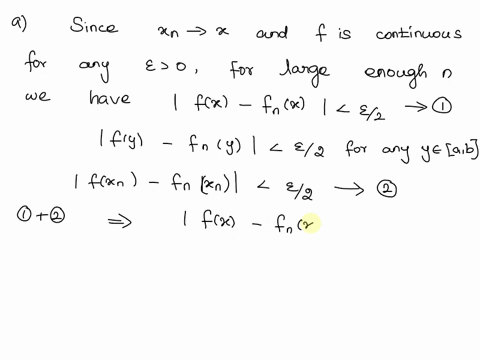 a) Since xn → x and f is continuous
for any ε>0, for large enough n
we have | f(x) - fn(x) | < ε/2 → ①
| f(y) - fn(y) | < ε/2 for any y∈[a,b]
| f(xn) - fn(xn) | < ε/2 → ②
①+② ⇒ | f(x) - fn(x